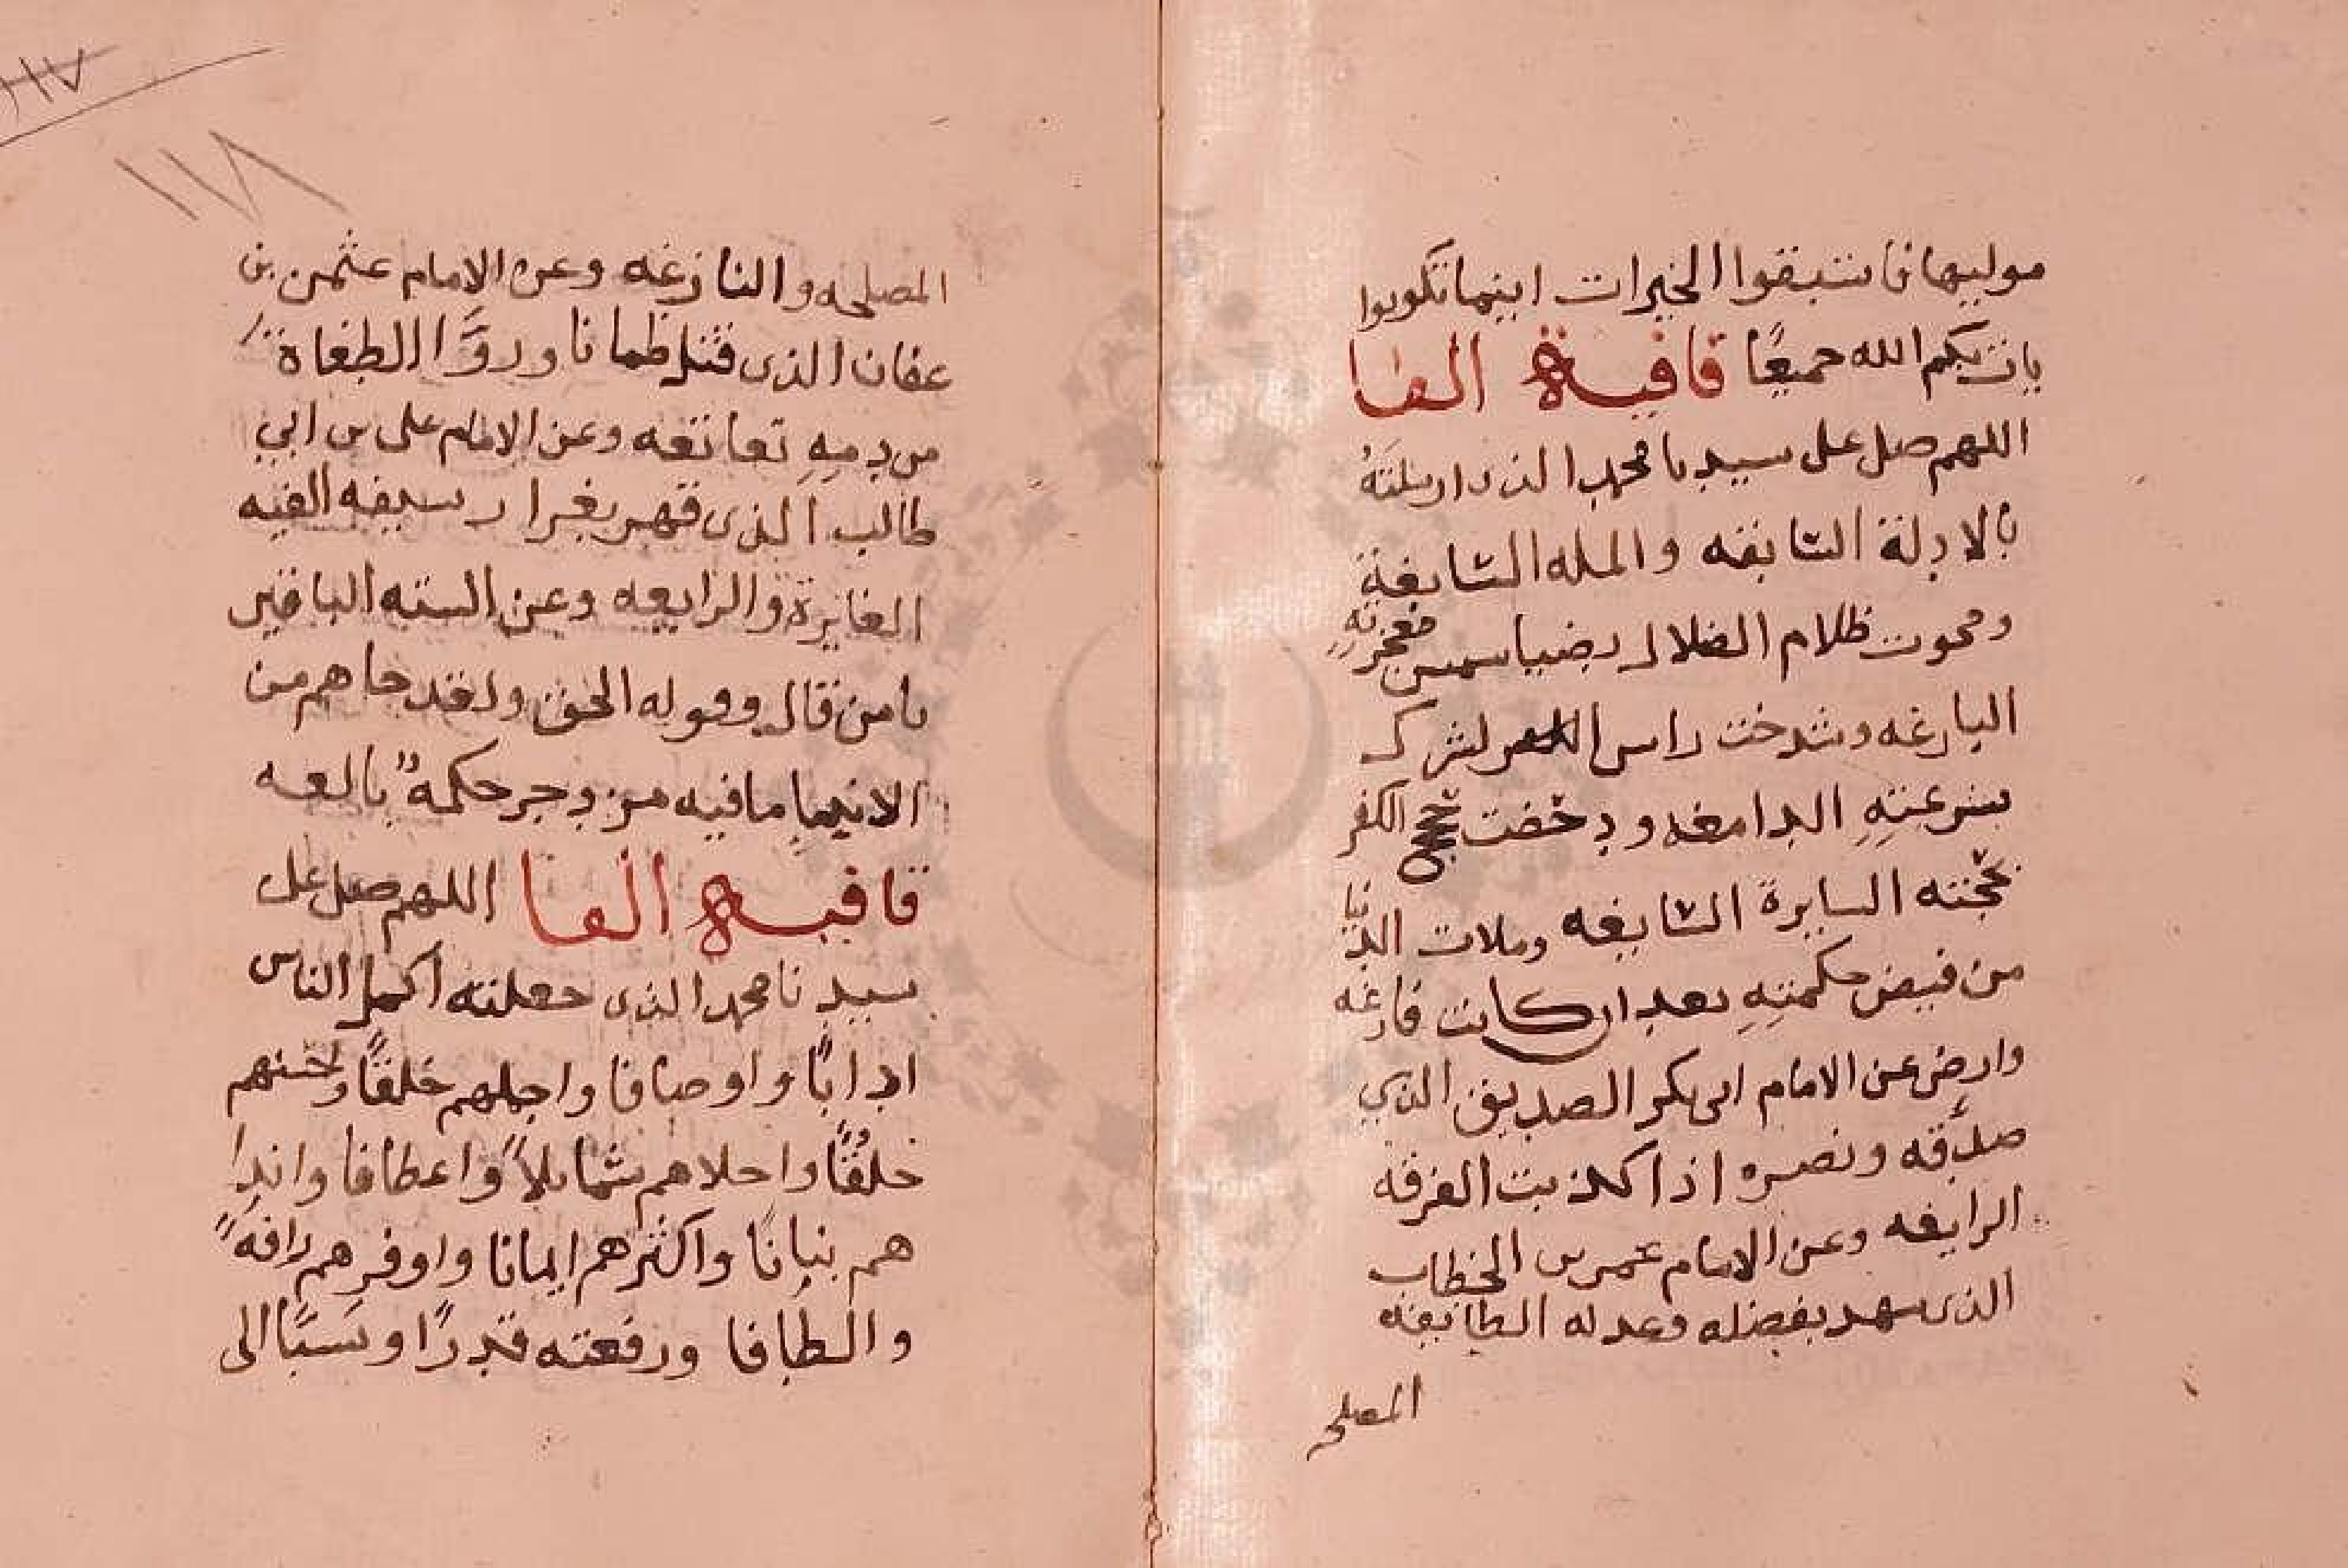 موليها فاستبقوا الخيرات اينما تكونوا
يات بكم الله جميعًا قافية الفا
اللهم صل على سيدنا محمد الذى ارسلتَهُ
بالادلة السابقه والملة السابغة
ومحوت ظلام الضلال بضيا شمس معجزتهِ
البازغه وشدخت راس الشرك
بشرعتهِ الدامغه ودحضت حجج الكفر
بحجته السايرة السابغه وملات الدنيا
من فيض حكمتهِ بعد ان كانت فارغه
وارض عن الامام ابى بكر الصديق الذي
صدَّقه ونصره اذا كذبت الفرقه
الرايغه وعن الامام عمر بن الخطاب
الذى شهد بفضله وعدله الطايفه
المصلحه
١١٧
١١٨
المصلحه والنازغه وعن الامام عثمن بن
عفان الذى قتل ظمانا وروَّا الطغاة
من دمهِ تعانقه وعن الامام على بن ابي
طالب الذى قهر بغرار سيفه الفيه
الغايرة والرايعه وعن الستة الباقين
يا من قال وقوله الحق ولقد جاهم من
الانبياِ ما فيه مزدجر حكمةٌ بالغه
قافيه الفا اللهم صل على
سيدنا محمد الذى جعلته اكمل الناس
ادابًا واوصافا واجملهم خلقًا واحسنهم
خلُقًا واحلاهم شمايلاً واعطافا واندا
هم بنانًا واكثرهم ايمانا واوفرهم رافةً
والطافا ورفعته قدرًا ونسَبًا الى